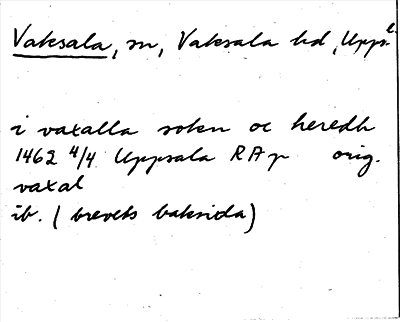 Vaksala, sn, Vaksala hd, Upps. l.
i vaxalla sokn oc heredh
1462 4/4 Uppsala RAp orig.
vaxal
ib. (brevets baksida)